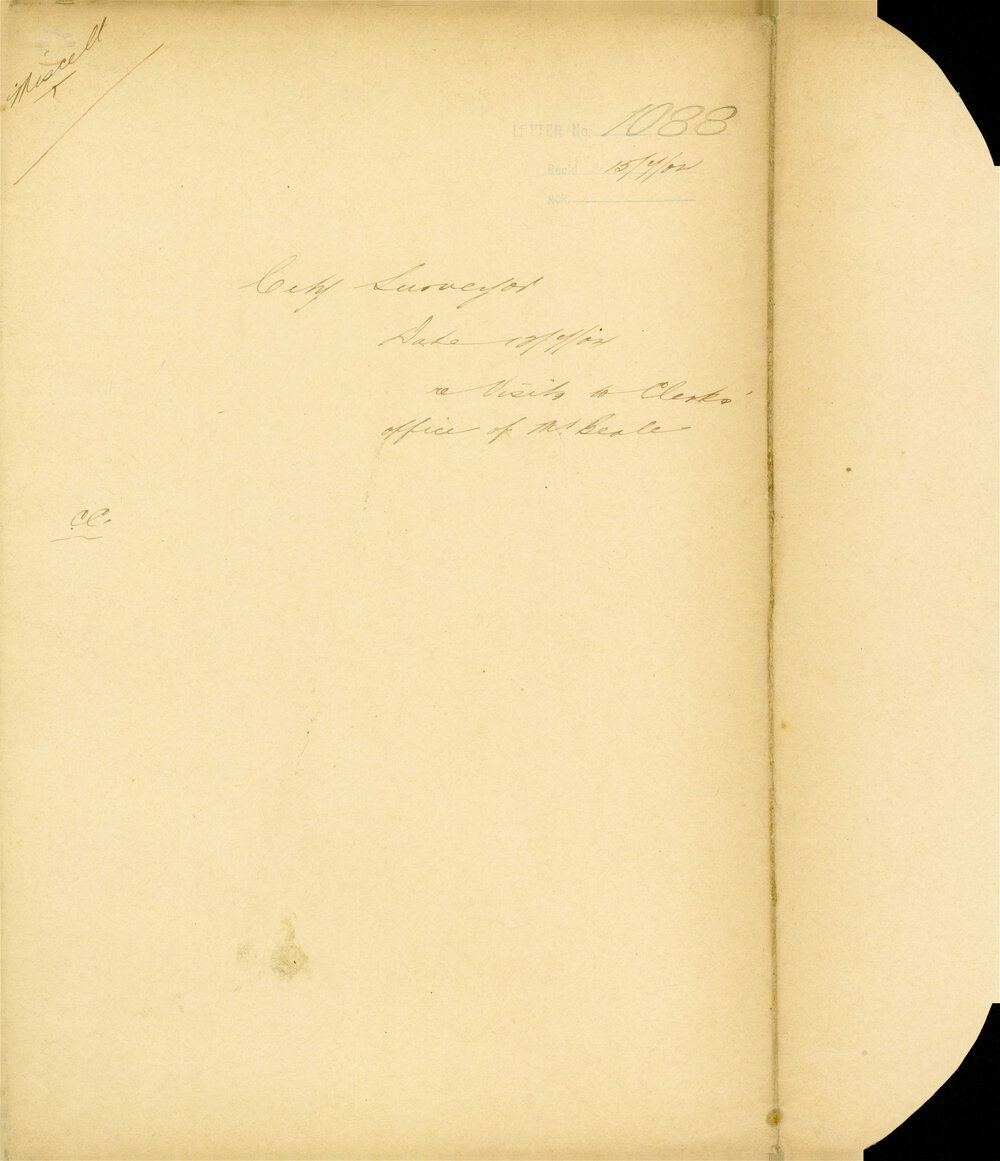 Miscell
LETTER No. 1088
Rec'd 15/7/02
Ack.
City Surveyor
Date 12/7/02
re Visits to Clerks'
office of Mr. Beale
CC.